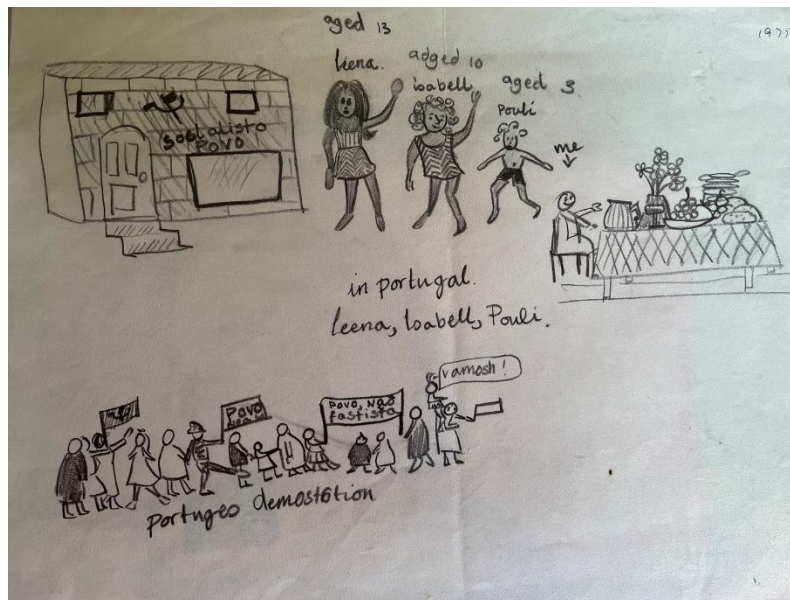 1977
aged 13
Leena.
adged 10
isabell
aged 3
Pouli
me
SOCIALISTO
POVO
in portugal.
Leena, Isabell, Pouli.
vamosh!
POVO
POVO, NAO
fastista
portugeo demostation